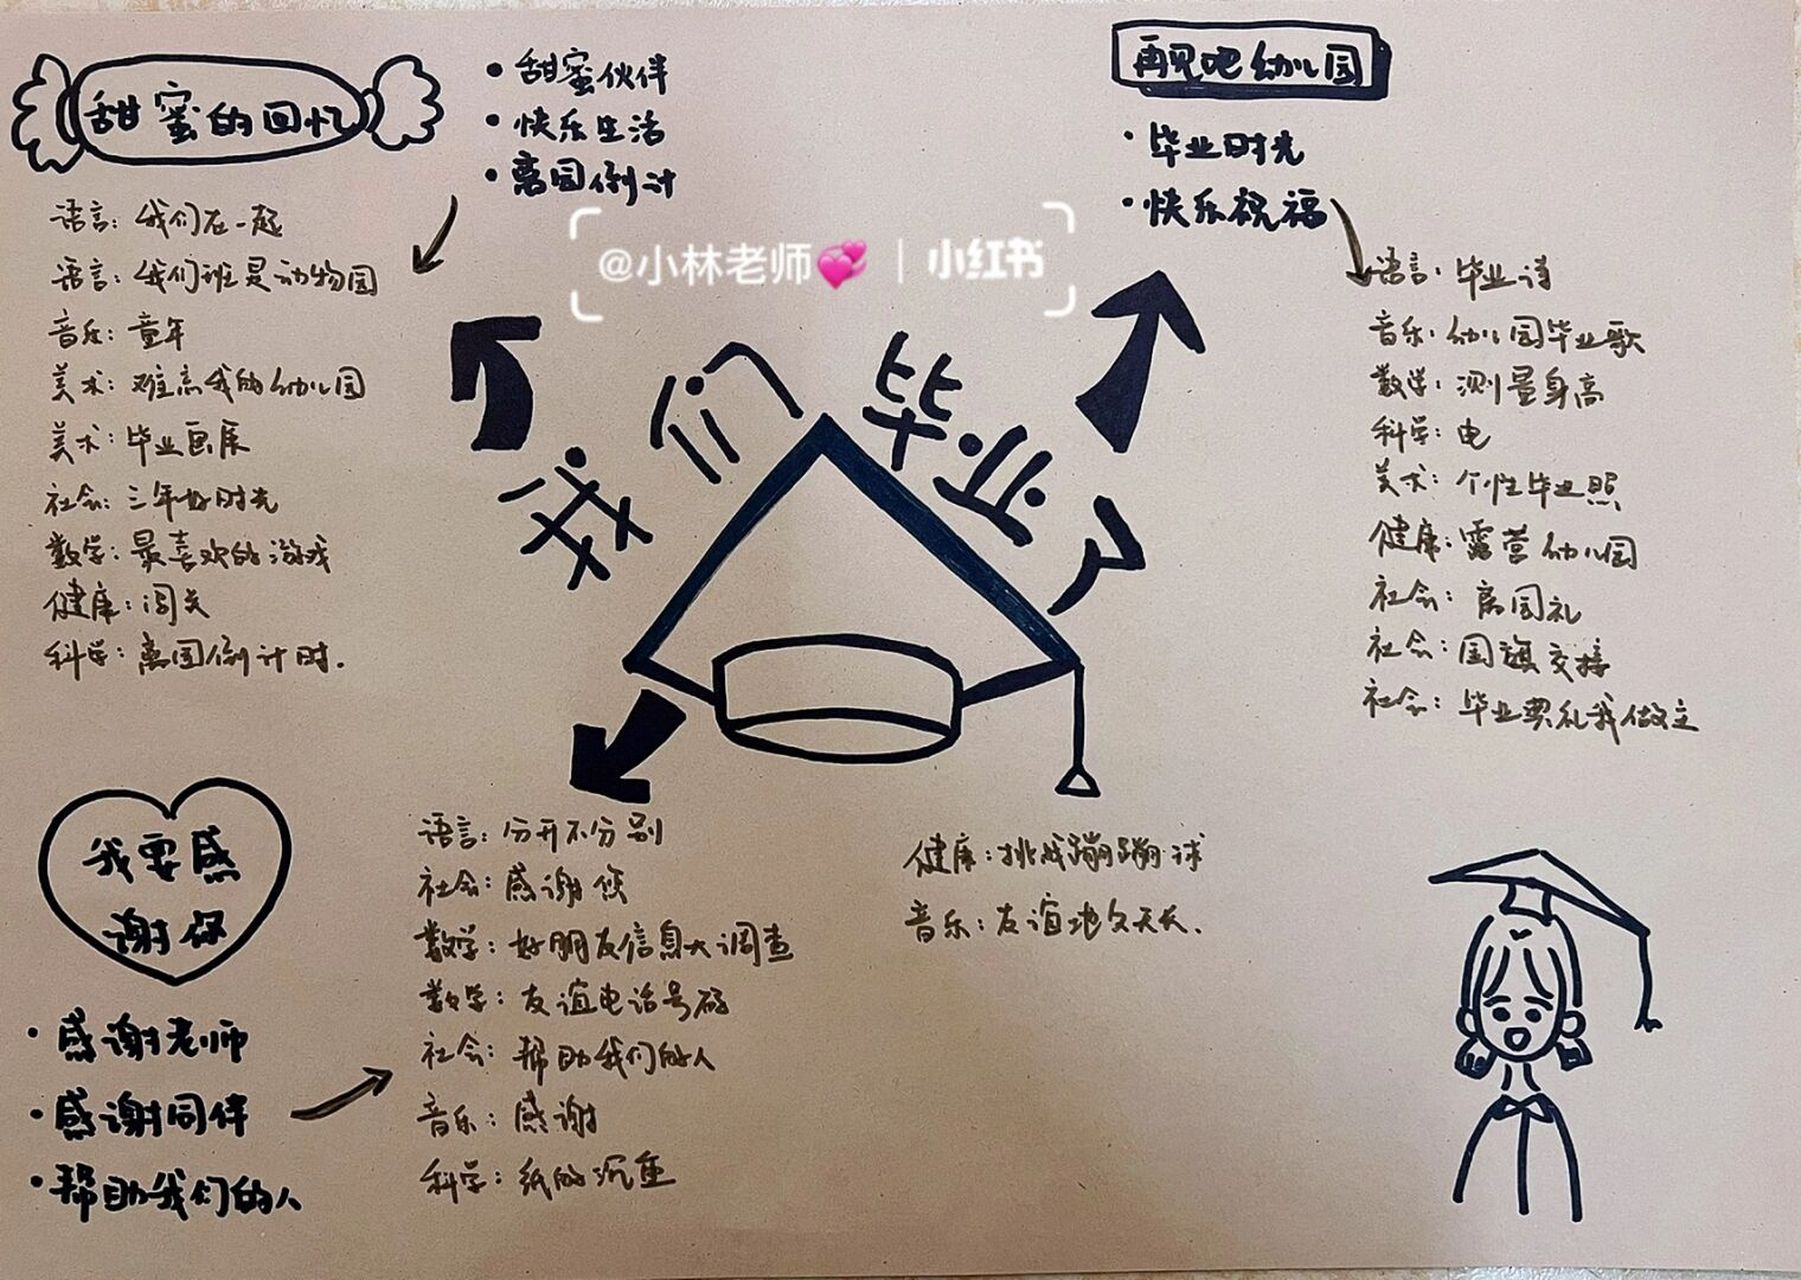 甜蜜的回忆
• 甜蜜伙伴
• 快乐生活
• 离园倒计
语言：我们在一起
语言：我们班是动物园
音乐：童年
美术：难忘我的幼儿园
美术：毕业画展
社会：三年好时光
数学：最喜欢的游戏
健康：闯关
科学：离园倒计时.
再见吧幼儿园
• 毕业时光
• 快乐祝福
语言：毕业诗
音乐：幼儿园毕业歌
数学：测量身高
科学：电
美术：个性毕业照
健康：露营幼儿园
社会：离园礼
社会：国旗交接
社会：毕业典礼我做主
@小林老师💞 | 小红书
我们毕业了
我要感
谢你
• 感谢老师
• 感谢同伴
• 帮助我们的人
语言：分开不分别
社会：感谢您
数学：好朋友信息大调查
数学：友谊电话号码
社会：帮助我们的人
音乐：感谢
科学：纸的沉重
健康：挑战蹦蹦球
音乐：友谊地久天长.